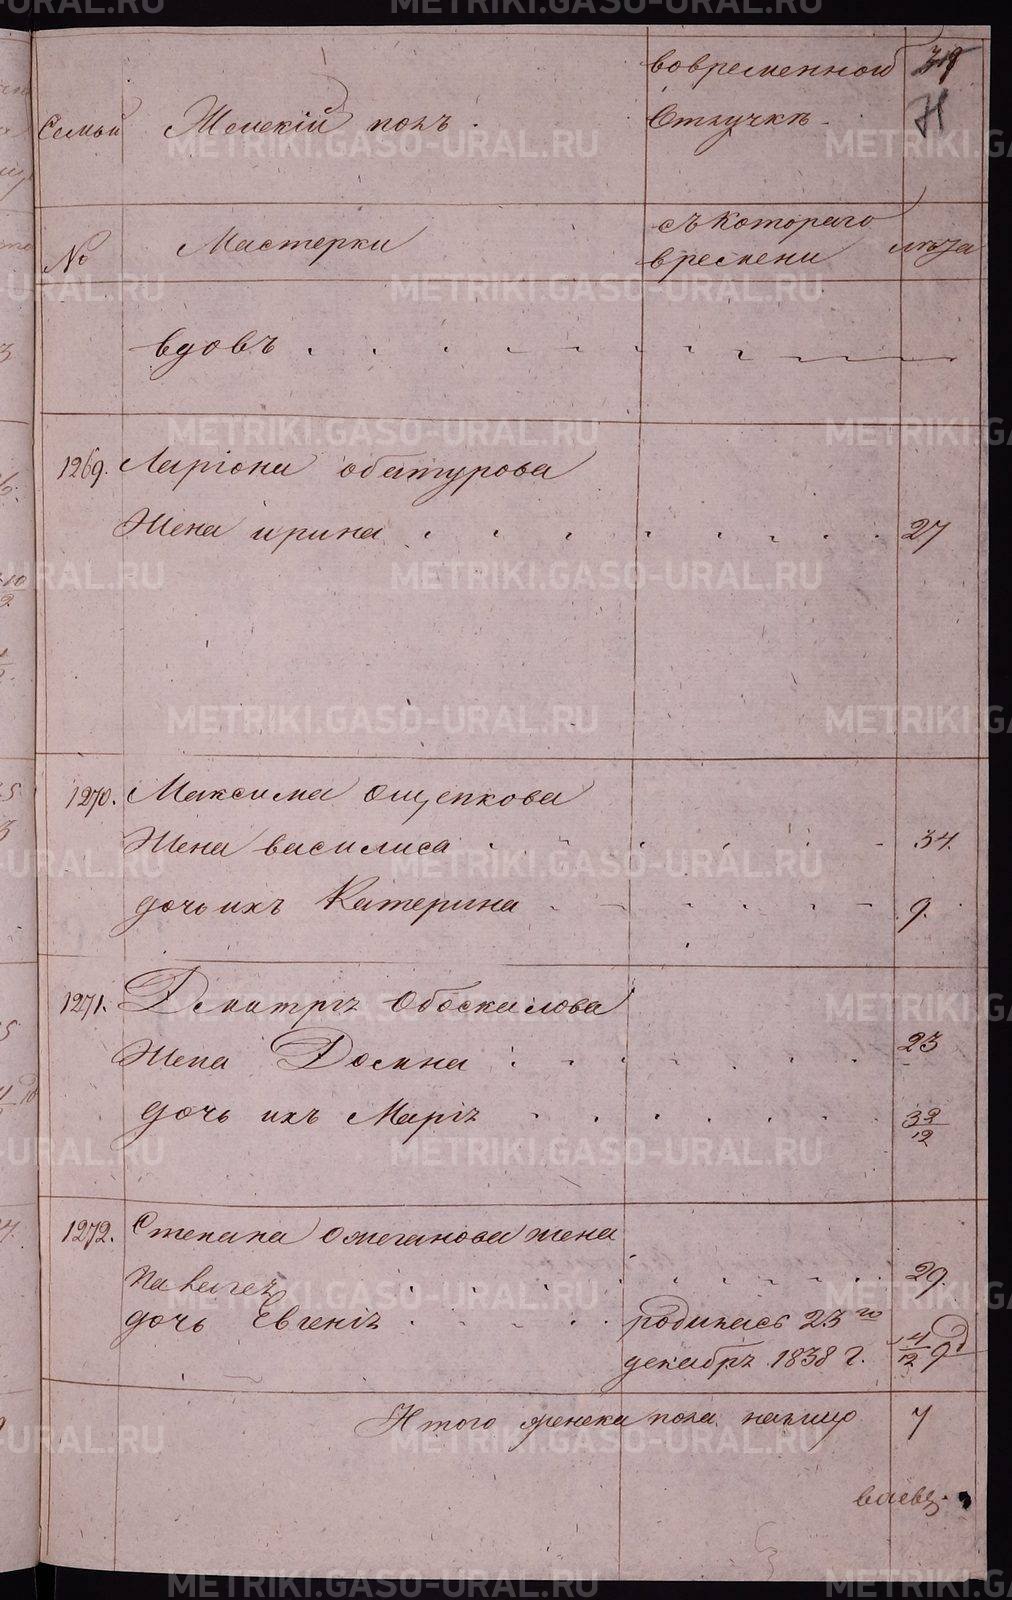 вовременной
Семьи Женскій полъ. Отлучкѣ.
съ Котораго
№ Мастерки времени лѣта
вдовъ
1269. Ларіона обатурова
Жена ирина 27
1270. Максима Ощепкова
Жена василиса 34.
дочь ихъ Катерина 9.
1271. Дмитрія Обоскалова
Жена Домна 23
дочь ихъ Марія 3 9/12
1272. Степана Ожеганова жена
29.
дочь Евгенія родилась 23го
декабря 1838 г.
Итого женска пола налицо 7
METRIKI.GASO-URAL.RU